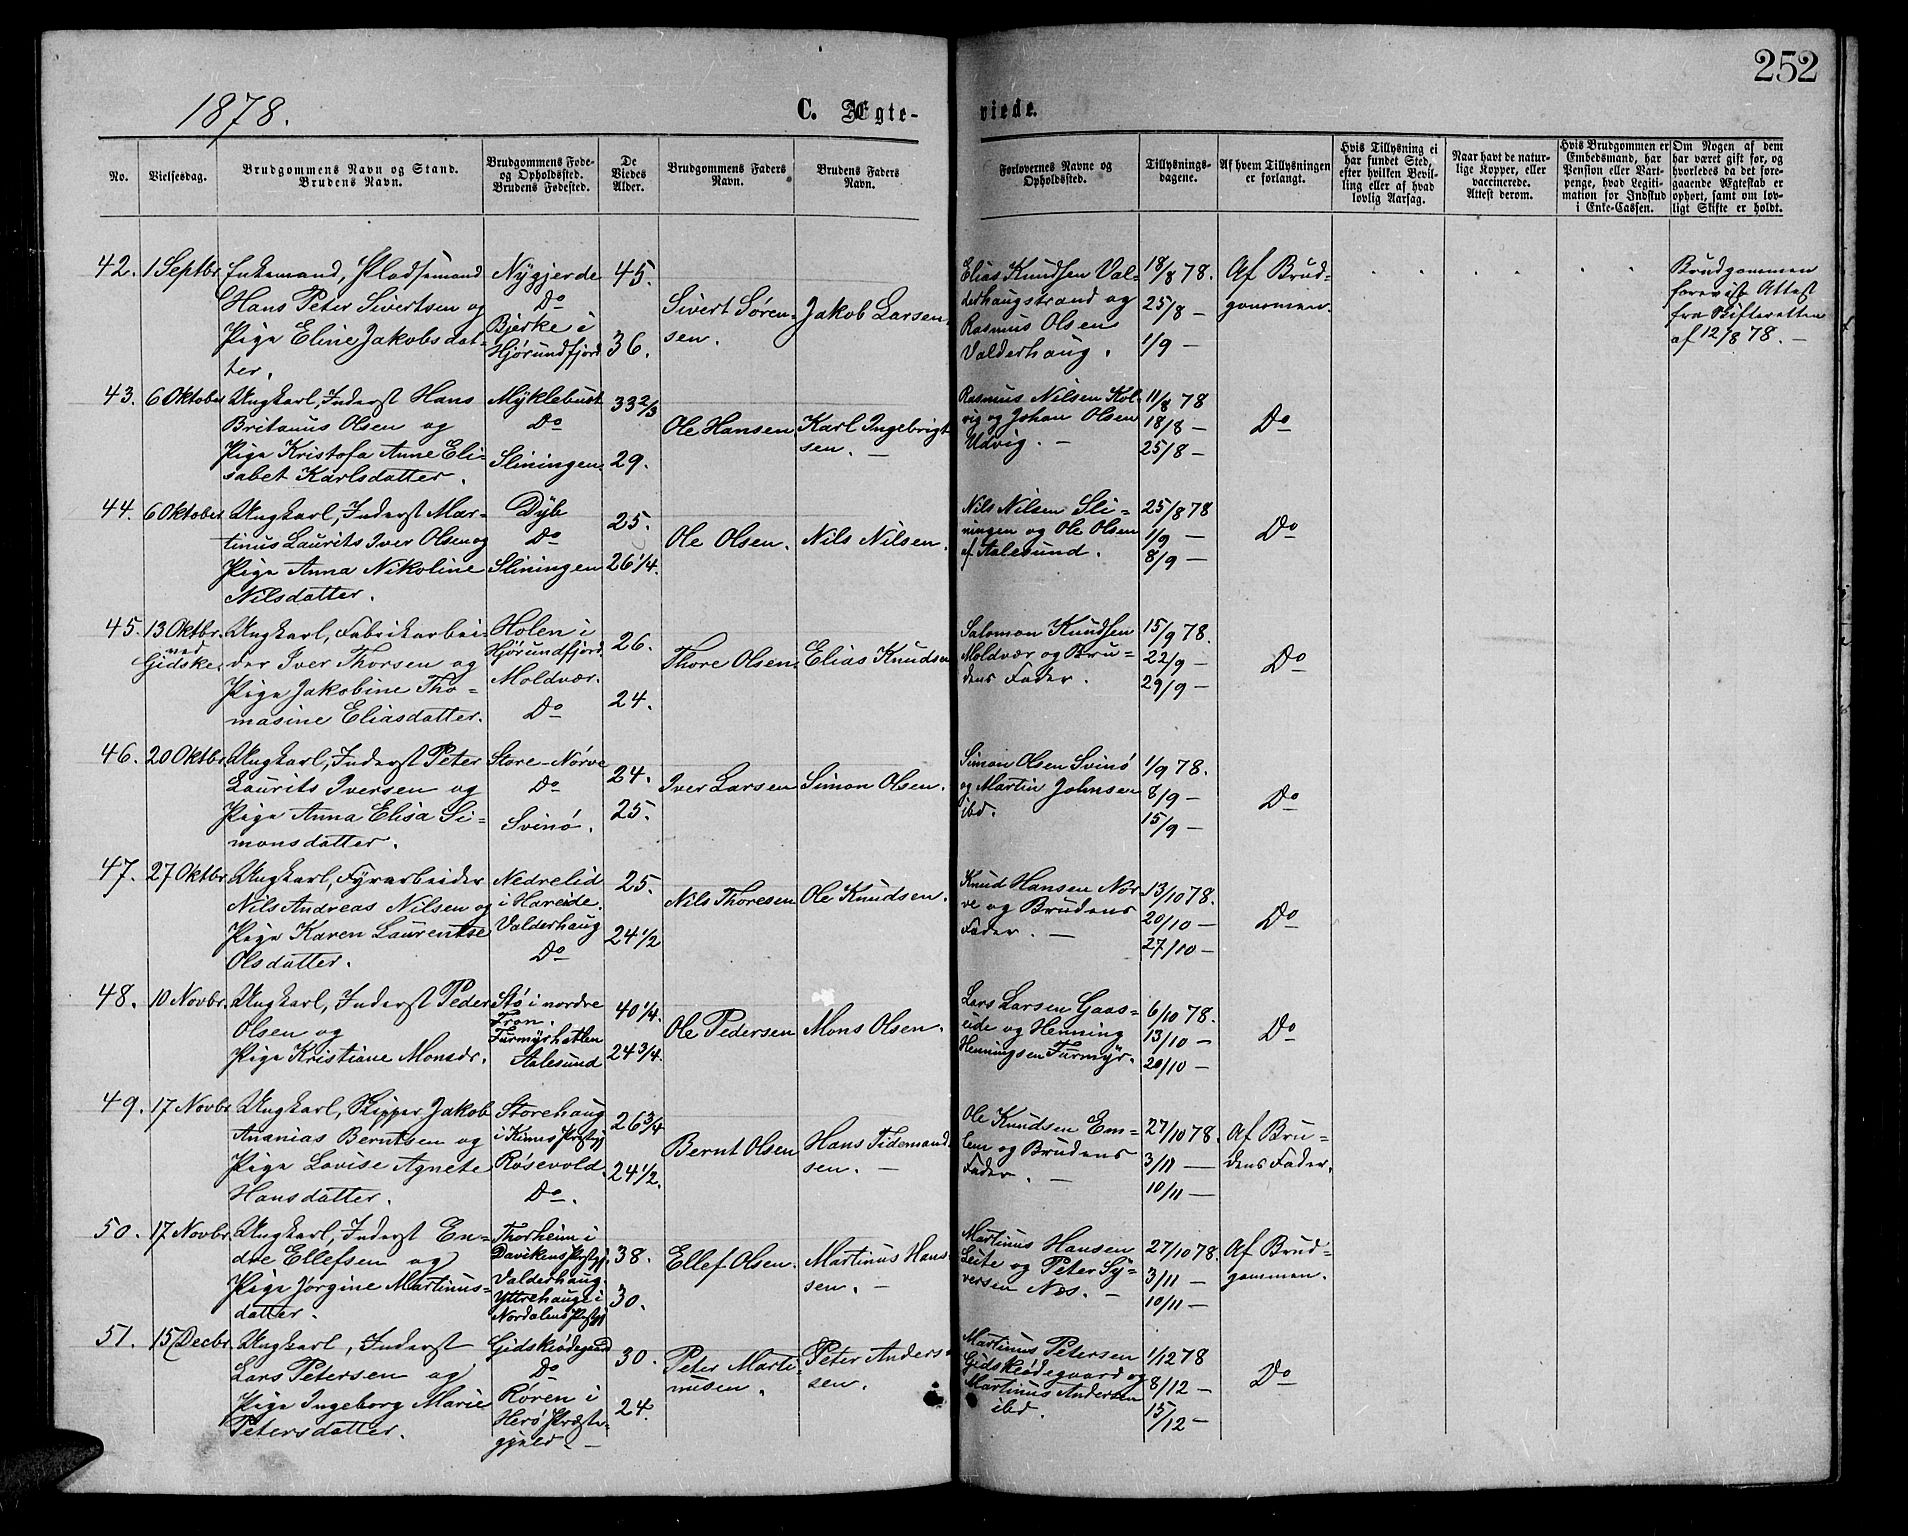 252
1878.
C. Ægte-
viede.
No.
Vielsesdag.
Brudgommens Navn og Stand.
Brudens Navn.
Brudgommens Føde-
og Opholdssted.
Brudens Fødested.
De
Viedes
Alder.
Brudgommens Faders
Navn.
Brudens Faders
Navn.
Forlovernes Navne og
Opholdssted.
Tillysnings-
dagene.
Af hvem Tillysningen
er forlangt.
Hvis Tillysning ei
har fundet Sted,
efter hvilken Bevil-
ling eller af hvad
lovlig Aarsag.
Naar havt de natur-
lige Kopper, eller
vaccinerede.
Attest derom.
Hvis Brudgommen er
Embedsmand, har
Pension eller Vart-
penge, hvad Legiti-
mation for Indskud
i Enke-Cassen.
Om Nogen af dem
har været gift før, og
hvorledes da det fore-
gaaende Ægteskab er
ophørt, samt om lov-
ligt Skifte er holdt.
42.
1 Septbr.
Enkemand, Pladsemand
Hans Peter Sivertsen og
Pige Eline Jakobsdat-
ter.
Nygjerde
Do
Bjerke i
Hjørundfjord
45.
36.
Sivert Søren-
sen.
Jakob Larsen.
Elias Knudsen Val-
derhaugstrand og
Rasmus Olsen
Valderhaug.
18/8 78.
25/8 —
1/9 —
Af Brud-
gommen.
Brudgommen
forevist Attest
fra Skifteretten
af 12/8 78. —
43.
6 Oktober
Ungkarl, Inderst Hans
Britanus Olsen og
Pige Kristofa Anne Eli-
sabet Karlsdatter.
Myklebust
Do
Sliningen.
33 2/3
29.
Ole Hansen
Karl Ingebrigt
sen. —
Rasmus Nilsen Kol-
vig og Johan Olsen
Udvig. —
11/8 78
18/8 —
25/8 —
Do
44.
6 Oktober
Ungkarl, Inderst Mar-
tinus Laurits Iver Olsen og
Pige Anna Nikoline
Nilsdatter.
Dyb
Do
Sliningen
25.
26 1/4.
Ole Olsen.
Nils Nilsen.
Nils Nilsen Sli-
ningen og Ole Olsen
af Aalesund.
25/8 78
1/9 —
8/9 —
Do
45.
13 Oktbr.
ved
Gidske.
Ungkarl, Fabrikarbei-
der Iver Thorsen og
Pige Jakobine Tho-
masine Eliasdatter.
Holen i
Hjørundfjord
Moldvær.
Do
26.
24.
Thore Olsen
Elias Knudsen
Salomon Knudsen
Moldvær og Bru-
dens Fader.
15/9 78.
22/9 —
29/9 —
Do
46.
20 Oktbr.
Ungkarl, Inderst Peter
Laurits Iversen og
Pige Anna Elisa Si-
monsdatter.
Store-Nørve
Do
Svinø.
24.
25.
Iver Larsen
Simon Olsen.
Simon Olsen Svinø
og Martin Johnsen
ibd.
1/9 78.
8/9 —
15/9 —
Do
47.
27 Oktbr.
Ungkarl, Fyrarbeider
Nils Andreas Nilsen og
Pige Karen Laurentse
Olsdatter.
Nedrelid
i Hareide.
Valderhaug
Do
25.
24 1/2
Nils Thoresen
Ole Knudsen.
Knud Hansen Nør-
ve og Brudens
Fader. —
13/10 78.
20/10 —
27/10 —
Do
48.
10 Novbr.
Ungkarl, Inderst Peder
Olsen og
Pige Kristiane Monsdr.
Stø i nordre
Fron.
Furmyrhatlen
Aalesund
40 1/4.
24 3/4.
Ole Pedersen
Mons Olsen.
Lars Larsen Gaas-
eide og Henning
Henningsen Furmyr.
6/10 78.
13/10 —
20/10 —
Do
49.
17 Novbr.
Ungkarl, Skipper Jakob
Ananias Berntsen og
Pige Lovise Agnete
Hansdatter.
Storehaug
i Kinns Præstgj
Røsevold.
Do.
26 3/4
24 1/2.
Bernt Olsen
Hans Tidemand
sen. —
Ole Knudsen Em-
lem og Brudens
Fader. —
27/10 78.
3/11 —
10/11 —
Af Bru-
dens Fader.
50.
17 Novbr.
Ungkarl, Inderst En-
dre Ellefsen og
Pige Jørgine Martinus-
datter.
Thorheim i
Davikens Prstgj.
Valderhaug.
Yttrehauge i
Nordalens Prstgj
38.
30.
Ellef Olsen.
Martinus Han-
sen. —
Martinus Hansen
Leite og Peter Sy-
versen Næs. —
27/10 78.
3/11 —
10/11 —
Af Brud-
gommen.
51.
15 Decbr.
Ungkarl, Inderst
Lars Petersen og
Pige Ingeborg Marie
Petersdatter.
Gidskeødegaard
Do
Røren i
Herø Præste-
gjeld. —
30.
24.
Peter Marti-
nusen.
Peter Anders-
sen.
Martinus Petersen
Gidskeødegaard og
Martinus Andersen
ibd.
1/12 78
8/12 —
15/12 —
Do